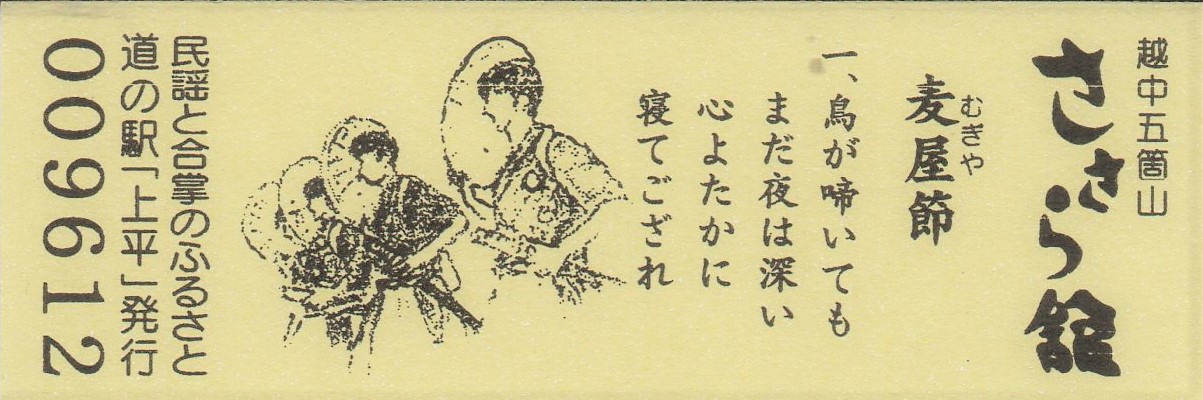 越中五箇山
ささら館
むぎや
麦屋節
一、鳥が啼いても
まだ夜は深い
心よたかに
寝てござれ
民謡と合掌のふるさと
道の駅「上平」発行
009612